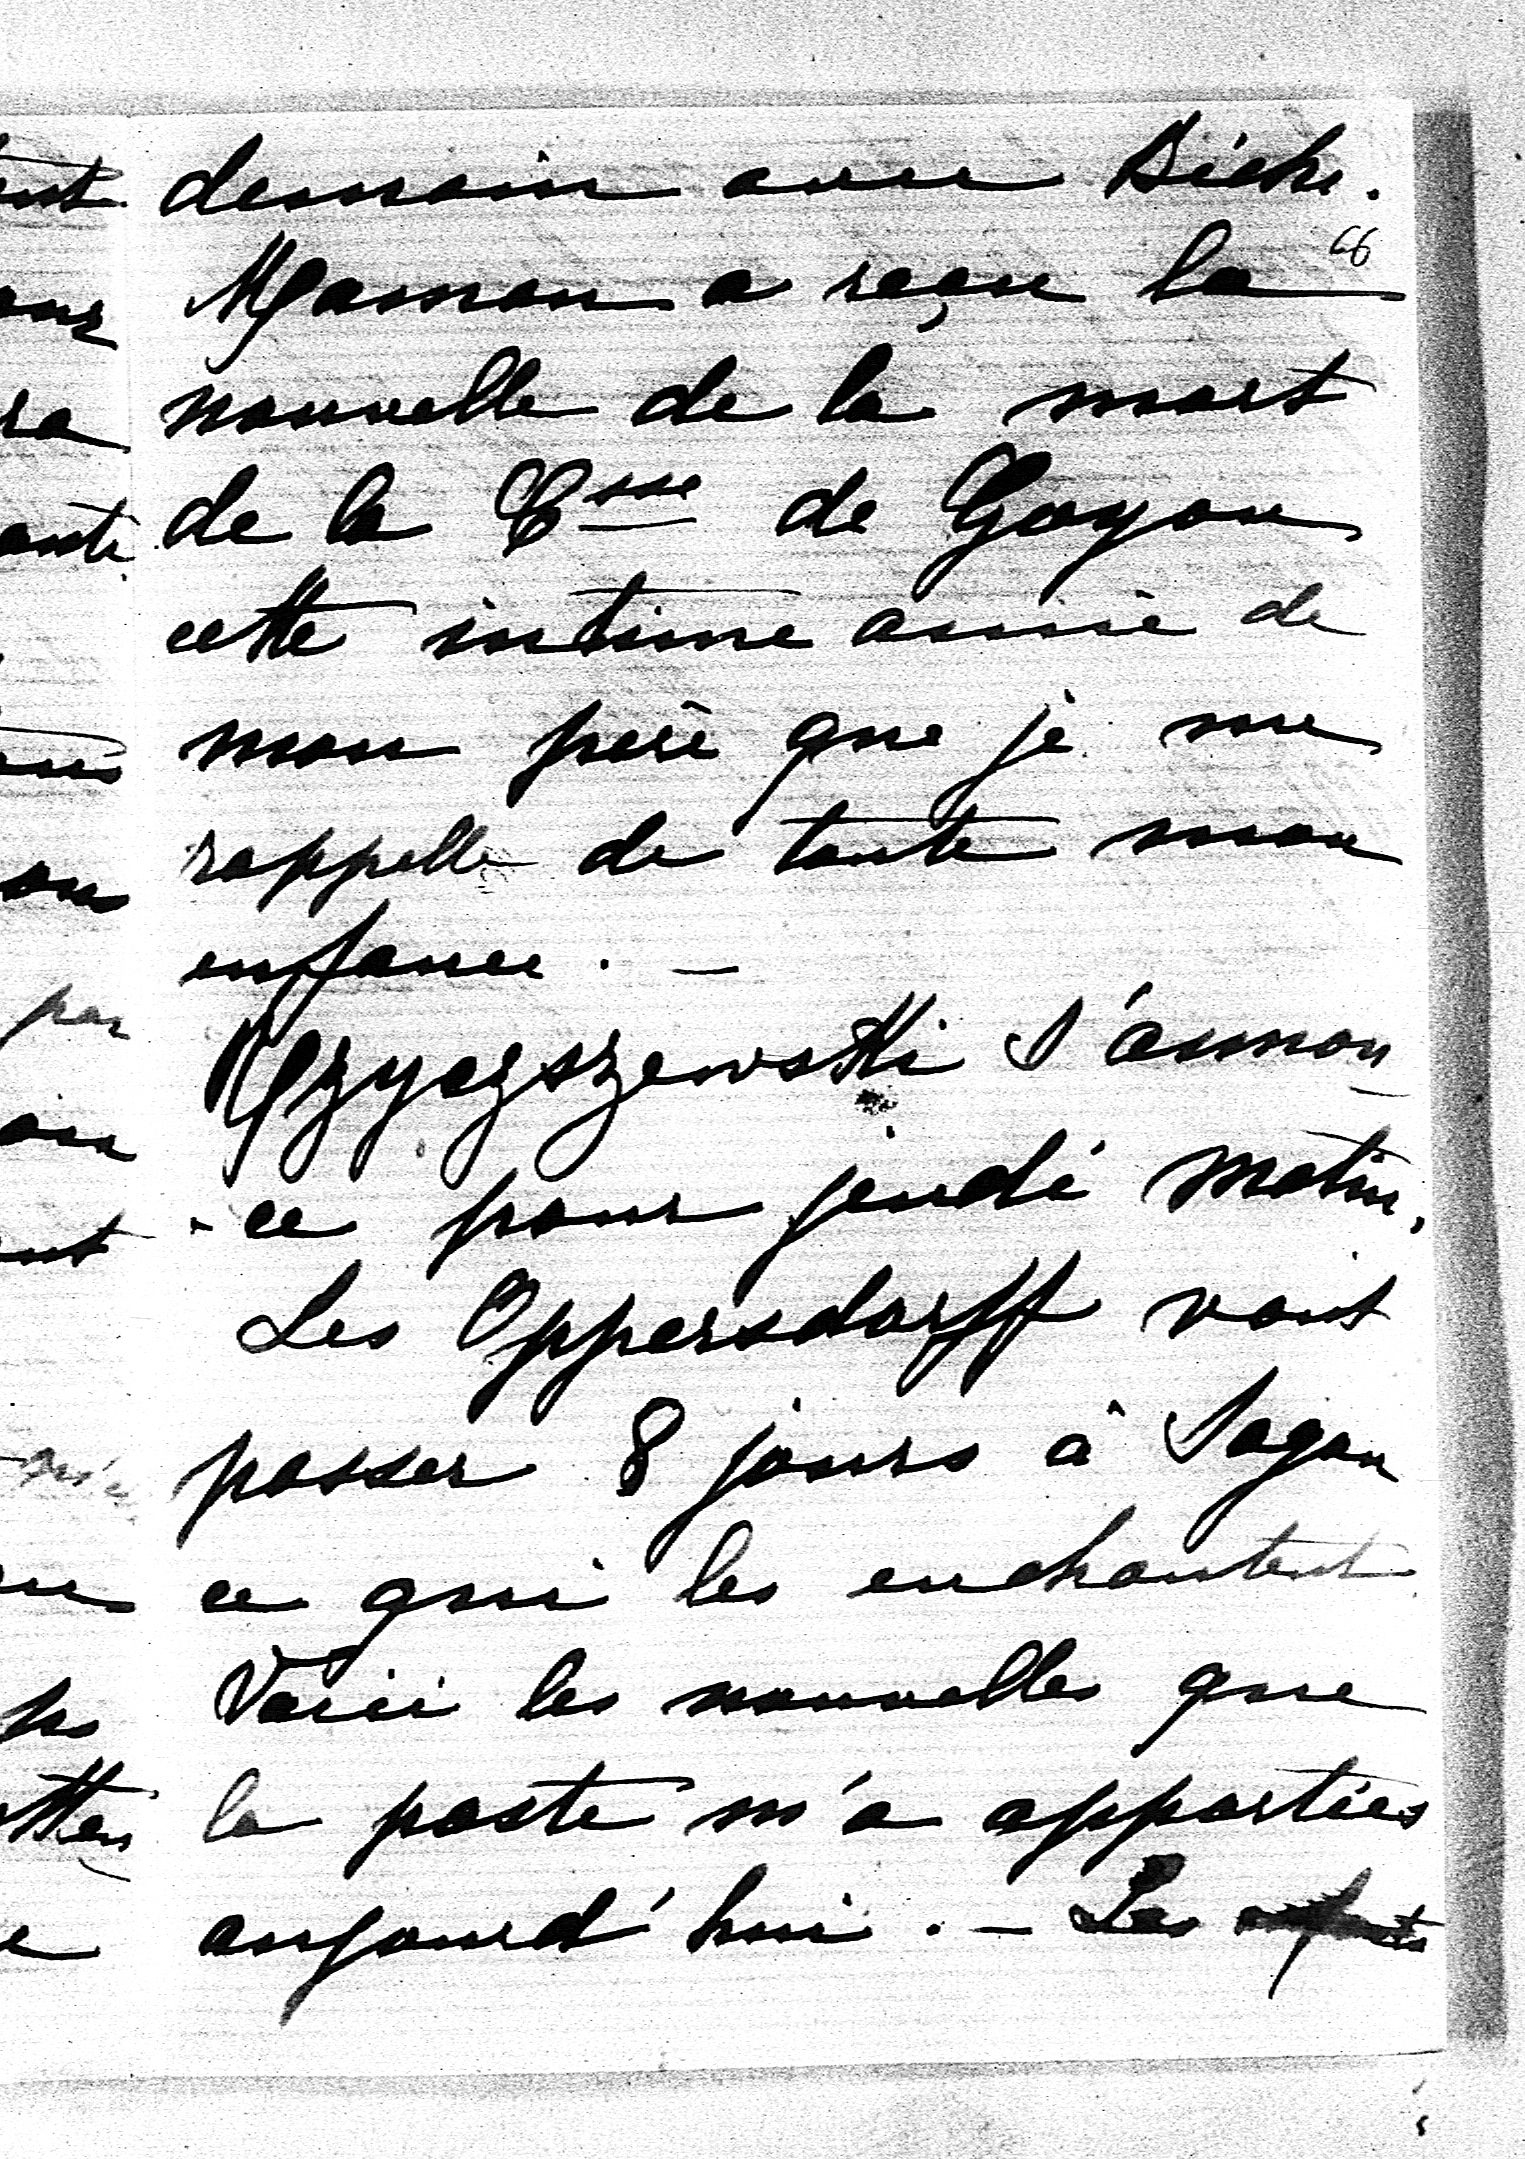 demain avec Biche.
66
Maman a reçu la
nouvelle de la mort
de la Csse de Goyon
cette intime amie de
mon père que je me
rappelle de toute mon
enfance. —
s'annon
ce pour jeudi matin.
Les Oppersdorff vont
passer 8 jours à Sagan
ce qui les enchantent
Voici les nouvelles que
la poste m'a apportées
aujourd'hui. — Les enfants